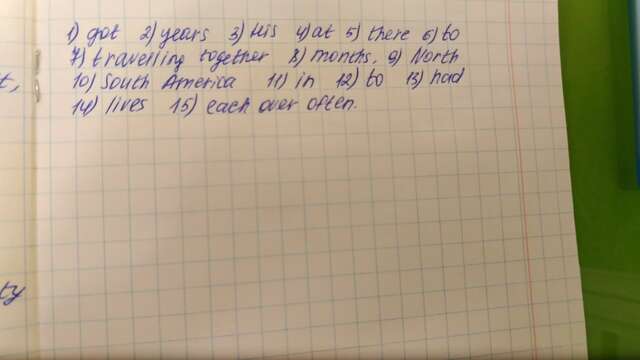 1) got 2) years 3) His 4) at 5) there 6) to
7) travelling together 8) months, 9) North
t,
10) South America 11) in 12) to 13) had
14) lives 15) each over often.
ty